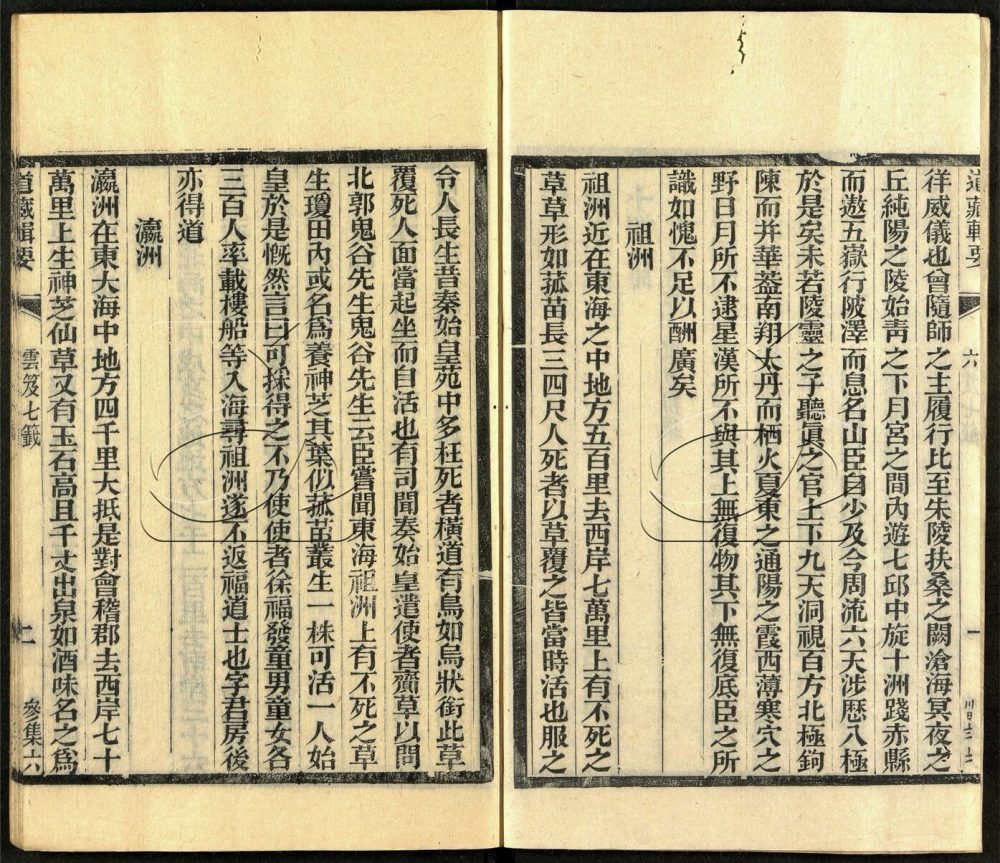 道藏輯要
六
一
徉威儀也曾隨師之主履行比至朱陵扶桑之闕滄海冥夜之
丘純陽之陵始靑之下月宮之間內遊七邱中旋十洲踐赤縣
而遨五嶽行陂澤而息名山臣自少及今周流六天涉歷八極
於是矣未若陵靈之子聽眞之官上下九天洞視百方北極鉤
陳而并華蓋南翔太丹而栖火夏東之通陽之霞西薄寒穴之
野日月所不逮星漢所不與其上無復物其下無復底臣之所
識如愧不足以酬廣矣
祖洲
祖洲近在東海之中地方五百里去西岸七萬里上有不死之
草草形如菰苗長三四尺人死者以草覆之皆當時活也服之
令人長生昔秦始皇苑中多枉死者橫道有鳥如烏狀銜此草
覆死人面當起坐而自活也有司聞奏始皇遣使者齎草以問
北郭鬼谷先生鬼谷先生云臣嘗聞東海祖洲上有不死之草
生瓊田內或名爲養神芝其葉似菰苗叢生一株可活一人始
皇於是慨然言曰可採得之不乃使使者徐福發童男童女各
三百人率載樓船等入海尋祖洲遂不返福道士也字君房後
亦得道
瀛洲
瀛洲在東大海中地方四千里大抵是對會稽郡去西岸七十
萬里上生神芝仙草又有玉石高且千丈出泉如酒味名之爲
道藏輯要
雲笈七籤
二
參集六